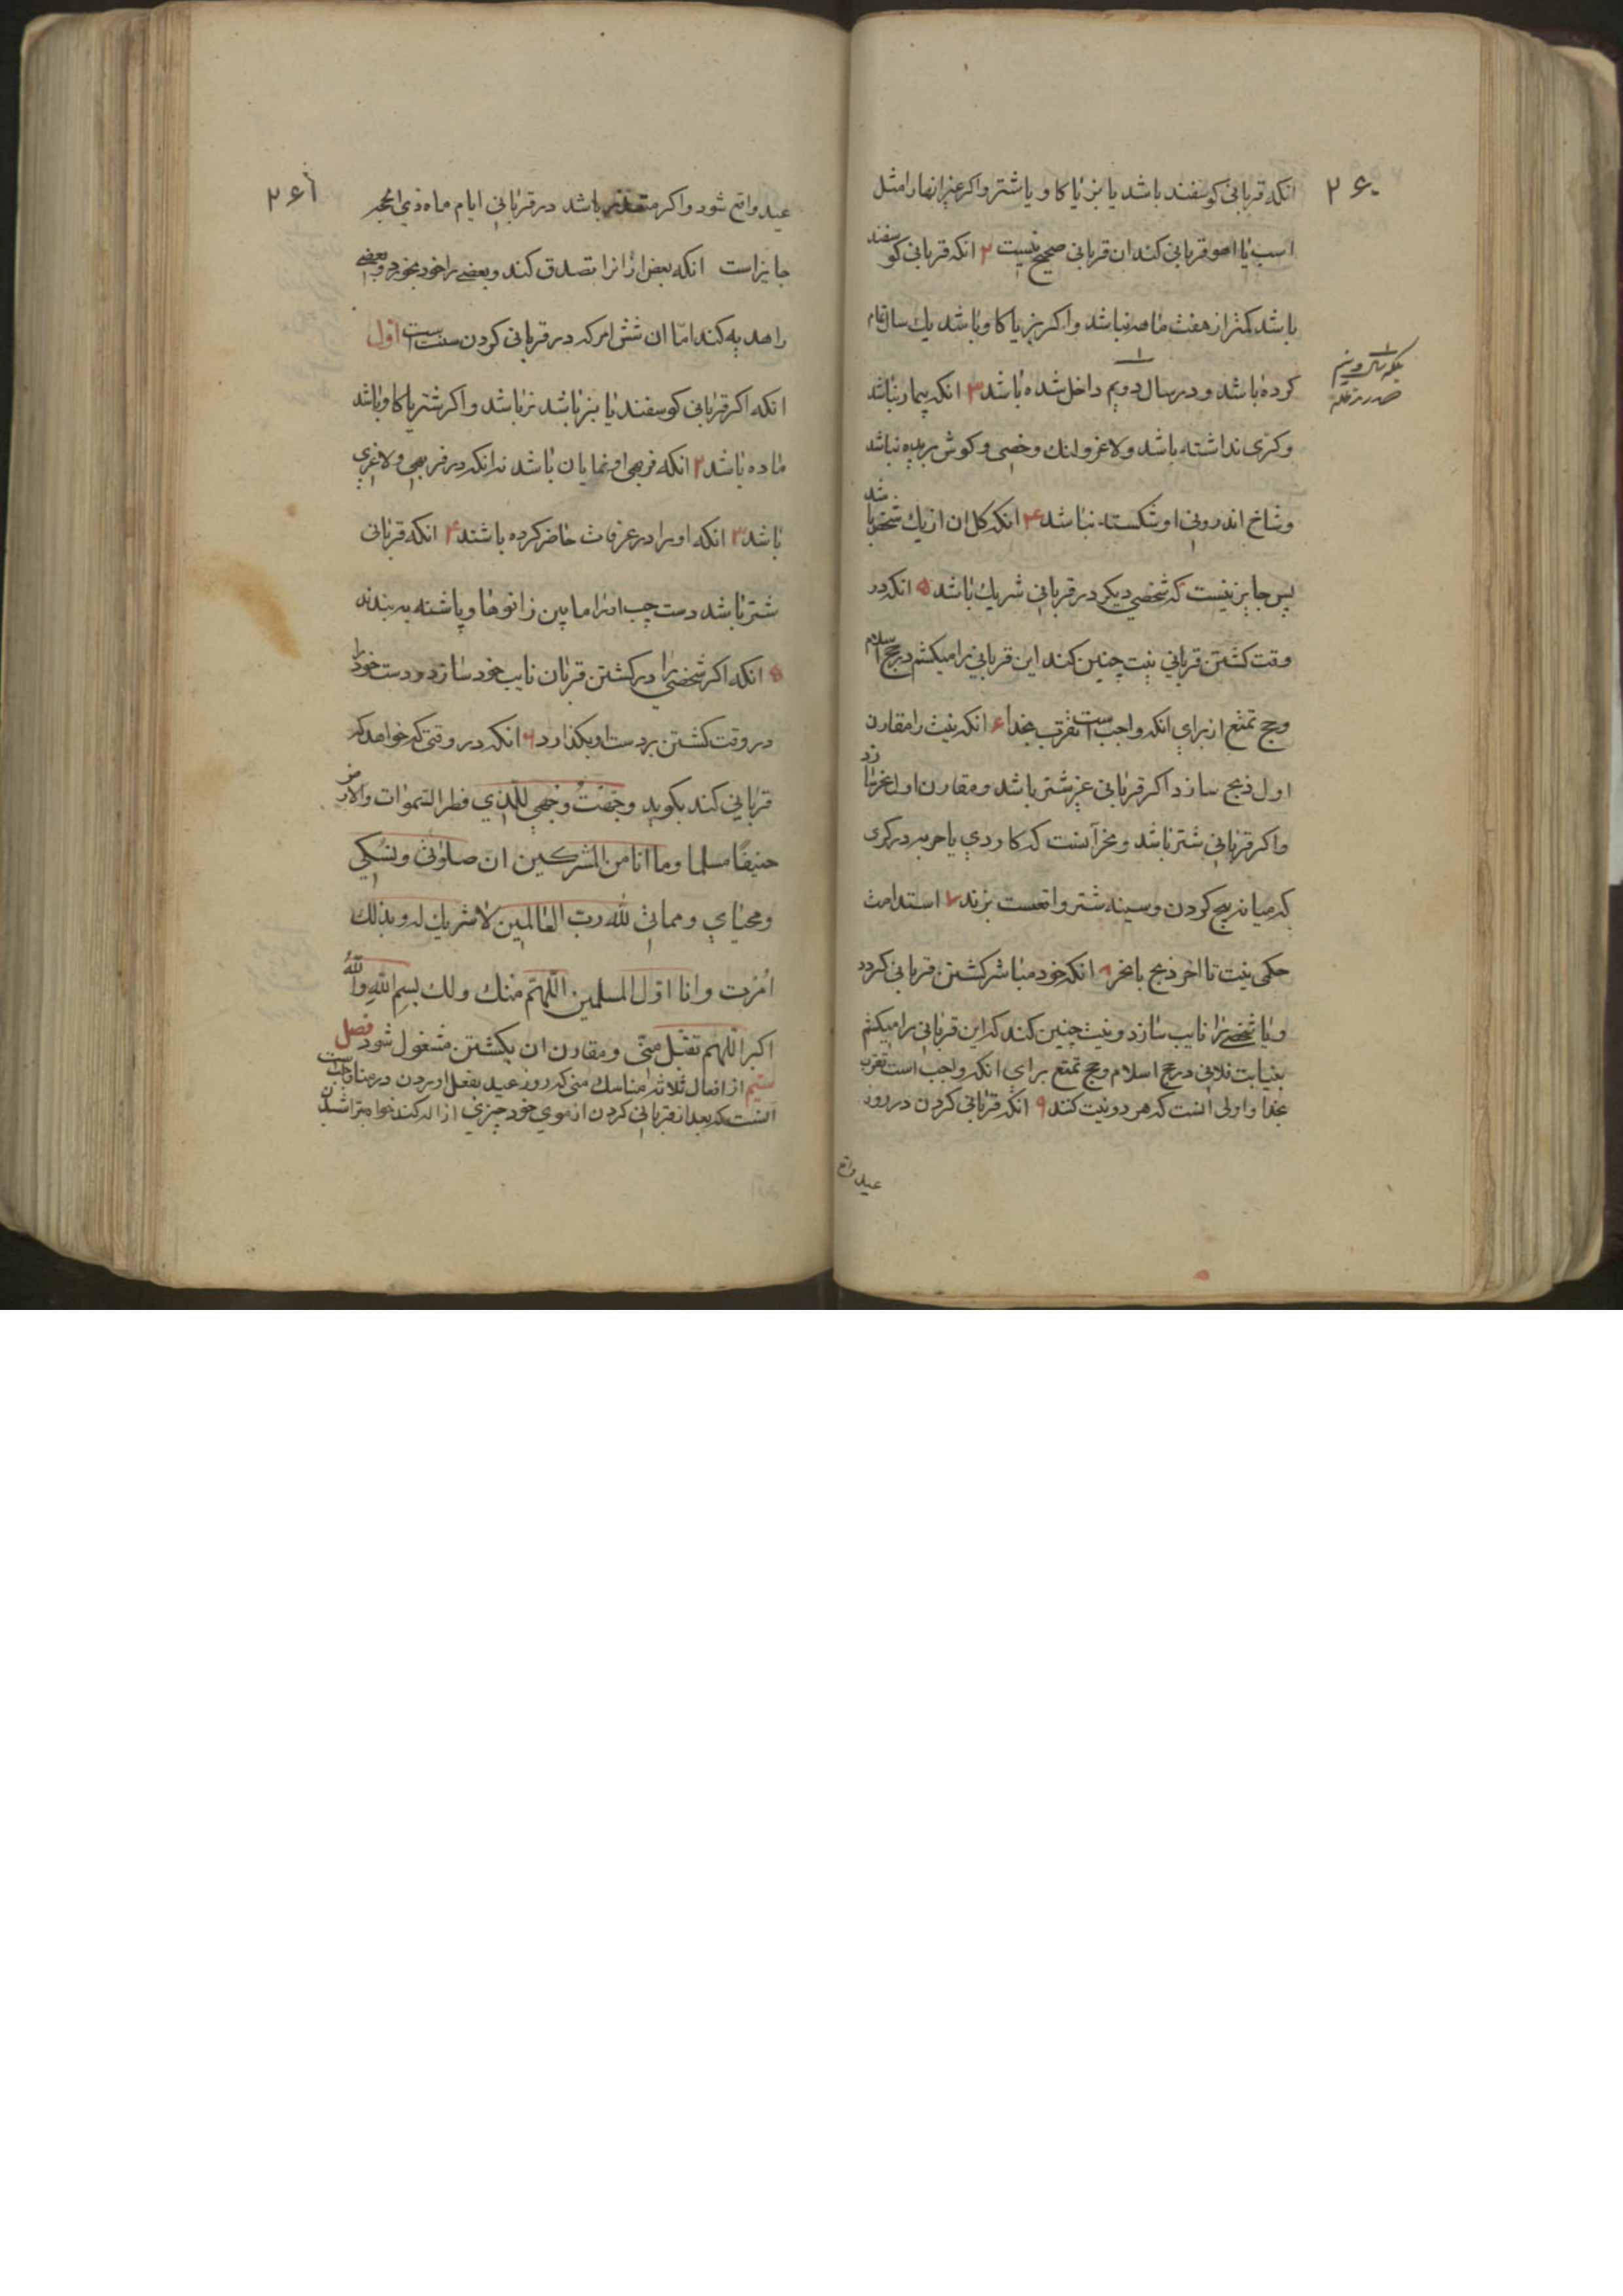 ۲۶۰
انکه قربانی کوسفند باشد یا بز یا کاو یا شتر واکر غیر انها را مثل
اسب یا اهو قربانی کند ان قربانی صحیح نیست ۲ انکه قربانی کوسفند
باشد کمتر از هفت ماهه نباشد واکر بز یا کاو باشد یك سال تمام
کرده باشد و در سال دویم داخل شده باشد ۳ انکه بیمار نباشد
وکری نداشته باشد ولاغر ولنك وخصی وکوش بریده نباشد
وشاخ اندرونی او شکسته نباشد ۴ انکه کل ان از یك شخص باشد
پس جایز نیست که شخصی دیکر در قربانی شریك باشد ۵ انکه در
وقت کشتن قربانی نیت چنین کند این قربانی را میکشم در حج اسلام
وحج تمتع از برای انکه واجب است تقرب بخدا ۶ انکه نیت را مقارن
اول ذبح سازد اکر قربانی غیر شتر باشد ومقارن اول نحر سازد
واکر قربانی شتر باشد ونحر آنست که کاردی یا حربه در کوی
که میانه بیخ کردن وسینه شتر واقعست بزند ۷ استدامت
حکمی نیت تا اخر ذبح یا نحر ۸ انکه خود مباشر کشتن قربانی کردد
ویا شخصی را نایب سازد ونیت چنین کند که این قربانی را میکشم
بنیابت فلانی در حج اسلام وحج تمتع برای انکه واجب است تقرب
بخدا واولی انست که هر دو نیت کنند ۹ انکه قربانی کردن در روز
عید واقع
۲۶۱
عید واقع شود واکر متعذر باشد در قربانی ایام ماه ذی الحجه
جایز است انکه بعض از انرا تصدق کند وبعضی را خود بخورد وبعضی
را هدیه کند امّا ان شش امر که در قربانی کردن سنت است اوّل
انکه اکر قربانی کوسفند یا بز باشد نر باشد واکر شتر یا کاو باشد
ماده باشد ۲ انکه فربهی او نمایان باشد نه انکه در فربهی ولاغری
باشد ۳ انکه او را در عرفات حاضر کرده باشند ۴ انکه قربانی
شتر باشد دست چپ او را مابین زانوها و پاشنه به بندند
۵ انکه اکر شخصی را در کشتن قربان نایب خود سازد دست خود را
در وقت کشتن بر دست او بکذارد ۶ انکه در وقتی که خواهد که
قربانی کند بکوید وجّهتُ وجهی للّذی فطر السّموات والارض
حنیفًا مسلما وما انا من المشرکین ان صلوتی ونسکی
ومحیای ومماتی للّه ربّ العالمین لا شریك له وبذلك
اُمرت وانا اوّل المسلمین اللّهمّ منك ولك بسم اللّه واللّه
اکبر اللّهم تقبّل منّی ومقارن ان بکشتن مشغول شود فصل
سیّم از افعال ثلاثه مناسك منی که روز عید بفعل اوردن در منا واجبست
آنست که بعد از قربانی کردن از موی خود چیزی ازاله کند خواه بتراشیدن